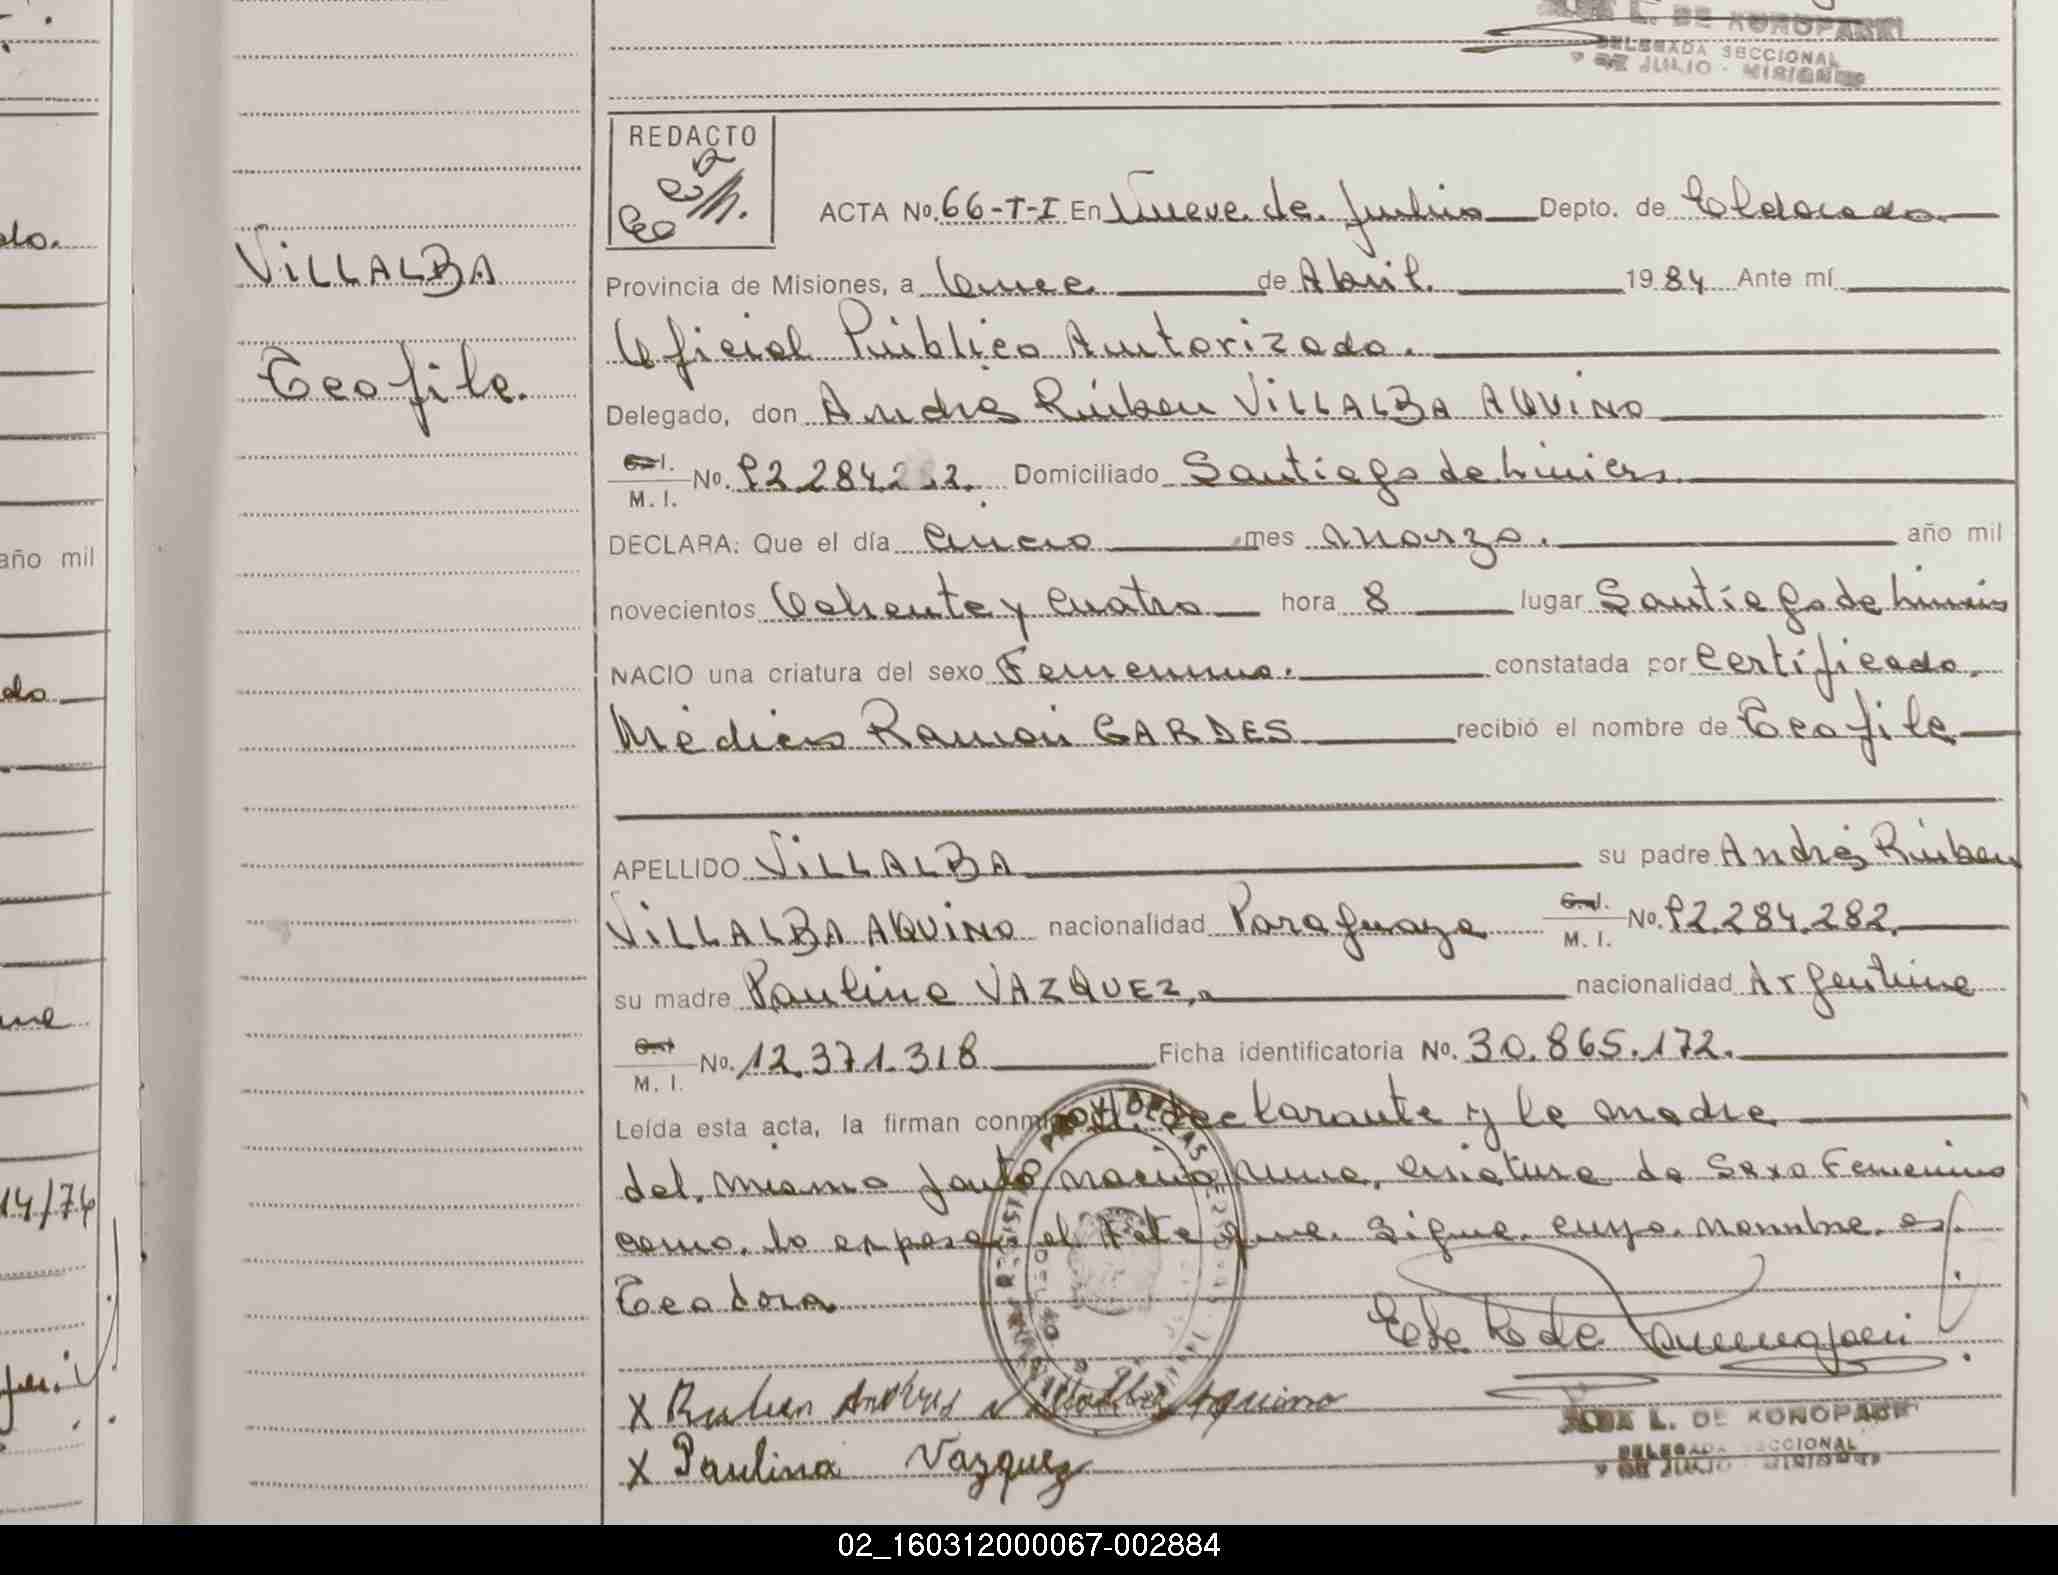 L. DE KONOPASKI
DELEGADA SECCIONAL
9 DE JULIO - MISIONES
REDACTO
ACTA No. 66-T-I En Nueve de Julio Depto. de Eldorado
VILLALBA
Provincia de Misiones, a Once de Abril. 1984 Ante mí
Oficial Público Autorizado.
Teofila.
Delegado, don Andrés Rúben VILLALBA AQUINO
C. I. M. I. No. 92.284.282. Domiciliado Santiago de Liniers
DECLARA: Que el día cinco mes marzo. año mil
novecientos Ochenta y Cuatro hora 8 lugar Santiago de Liniers
NACIO una criatura del sexo Femenino. constatada por Certificado
Médico Ramón GARDES recibió el nombre de Teofila
APELLIDO VILLALBA su padre Andrés Rúben
VILLALBA AQUINO nacionalidad Paraguaya C. I. M. I. No. 92.284.282.
su madre Paulina VAZQUEZ, nacionalidad Argentina
C. I. M. I. No. 12.371.318 Ficha identificatoria No. 30.865.172.
Leída esta acta, la firman conmigo el declarante y la madre
del mismo parto nació una criatura de Sexo Femenino
como lo expresa el Acta que sigue cuyo nombre es
Teodora
X Ruben Andres Villalba Aquino
X Paulina Vazquez
L. DE KONOPASKI
DELEGADA SECCIONAL
9 DE JULIO - MISIONES
año mil
14/74
02_160312000067-002884